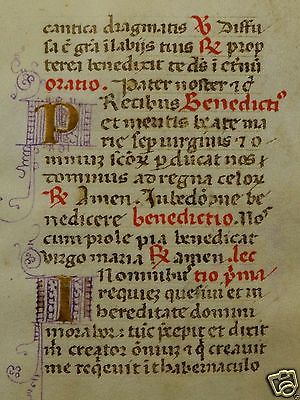 cantica dragmatis ℣ Diffu
sa ē gr̄a ī labijs tuis ℟ prop
terea benedixit te ds̄ ī eternū
oratio. Pater noster et q̄
Precibus Benedictiō
et meritis beate ma
rie sēp virginis et o
mniuz sc̄oꝝ perducat nos
dominus ad regna celoꝝ
℟ Amen. Iube dōpne be
nedicere benedictio. Nos
cum prole pia benedicat
virgo maria ℟ amen. lec
In omnibus tio p̄ma
requiez quesiui et in
hereditate domini
morabor: tūc precepit et dicit
m̄ creator oīniuz et q̄ creauit
me requieuit ī thabernaculo